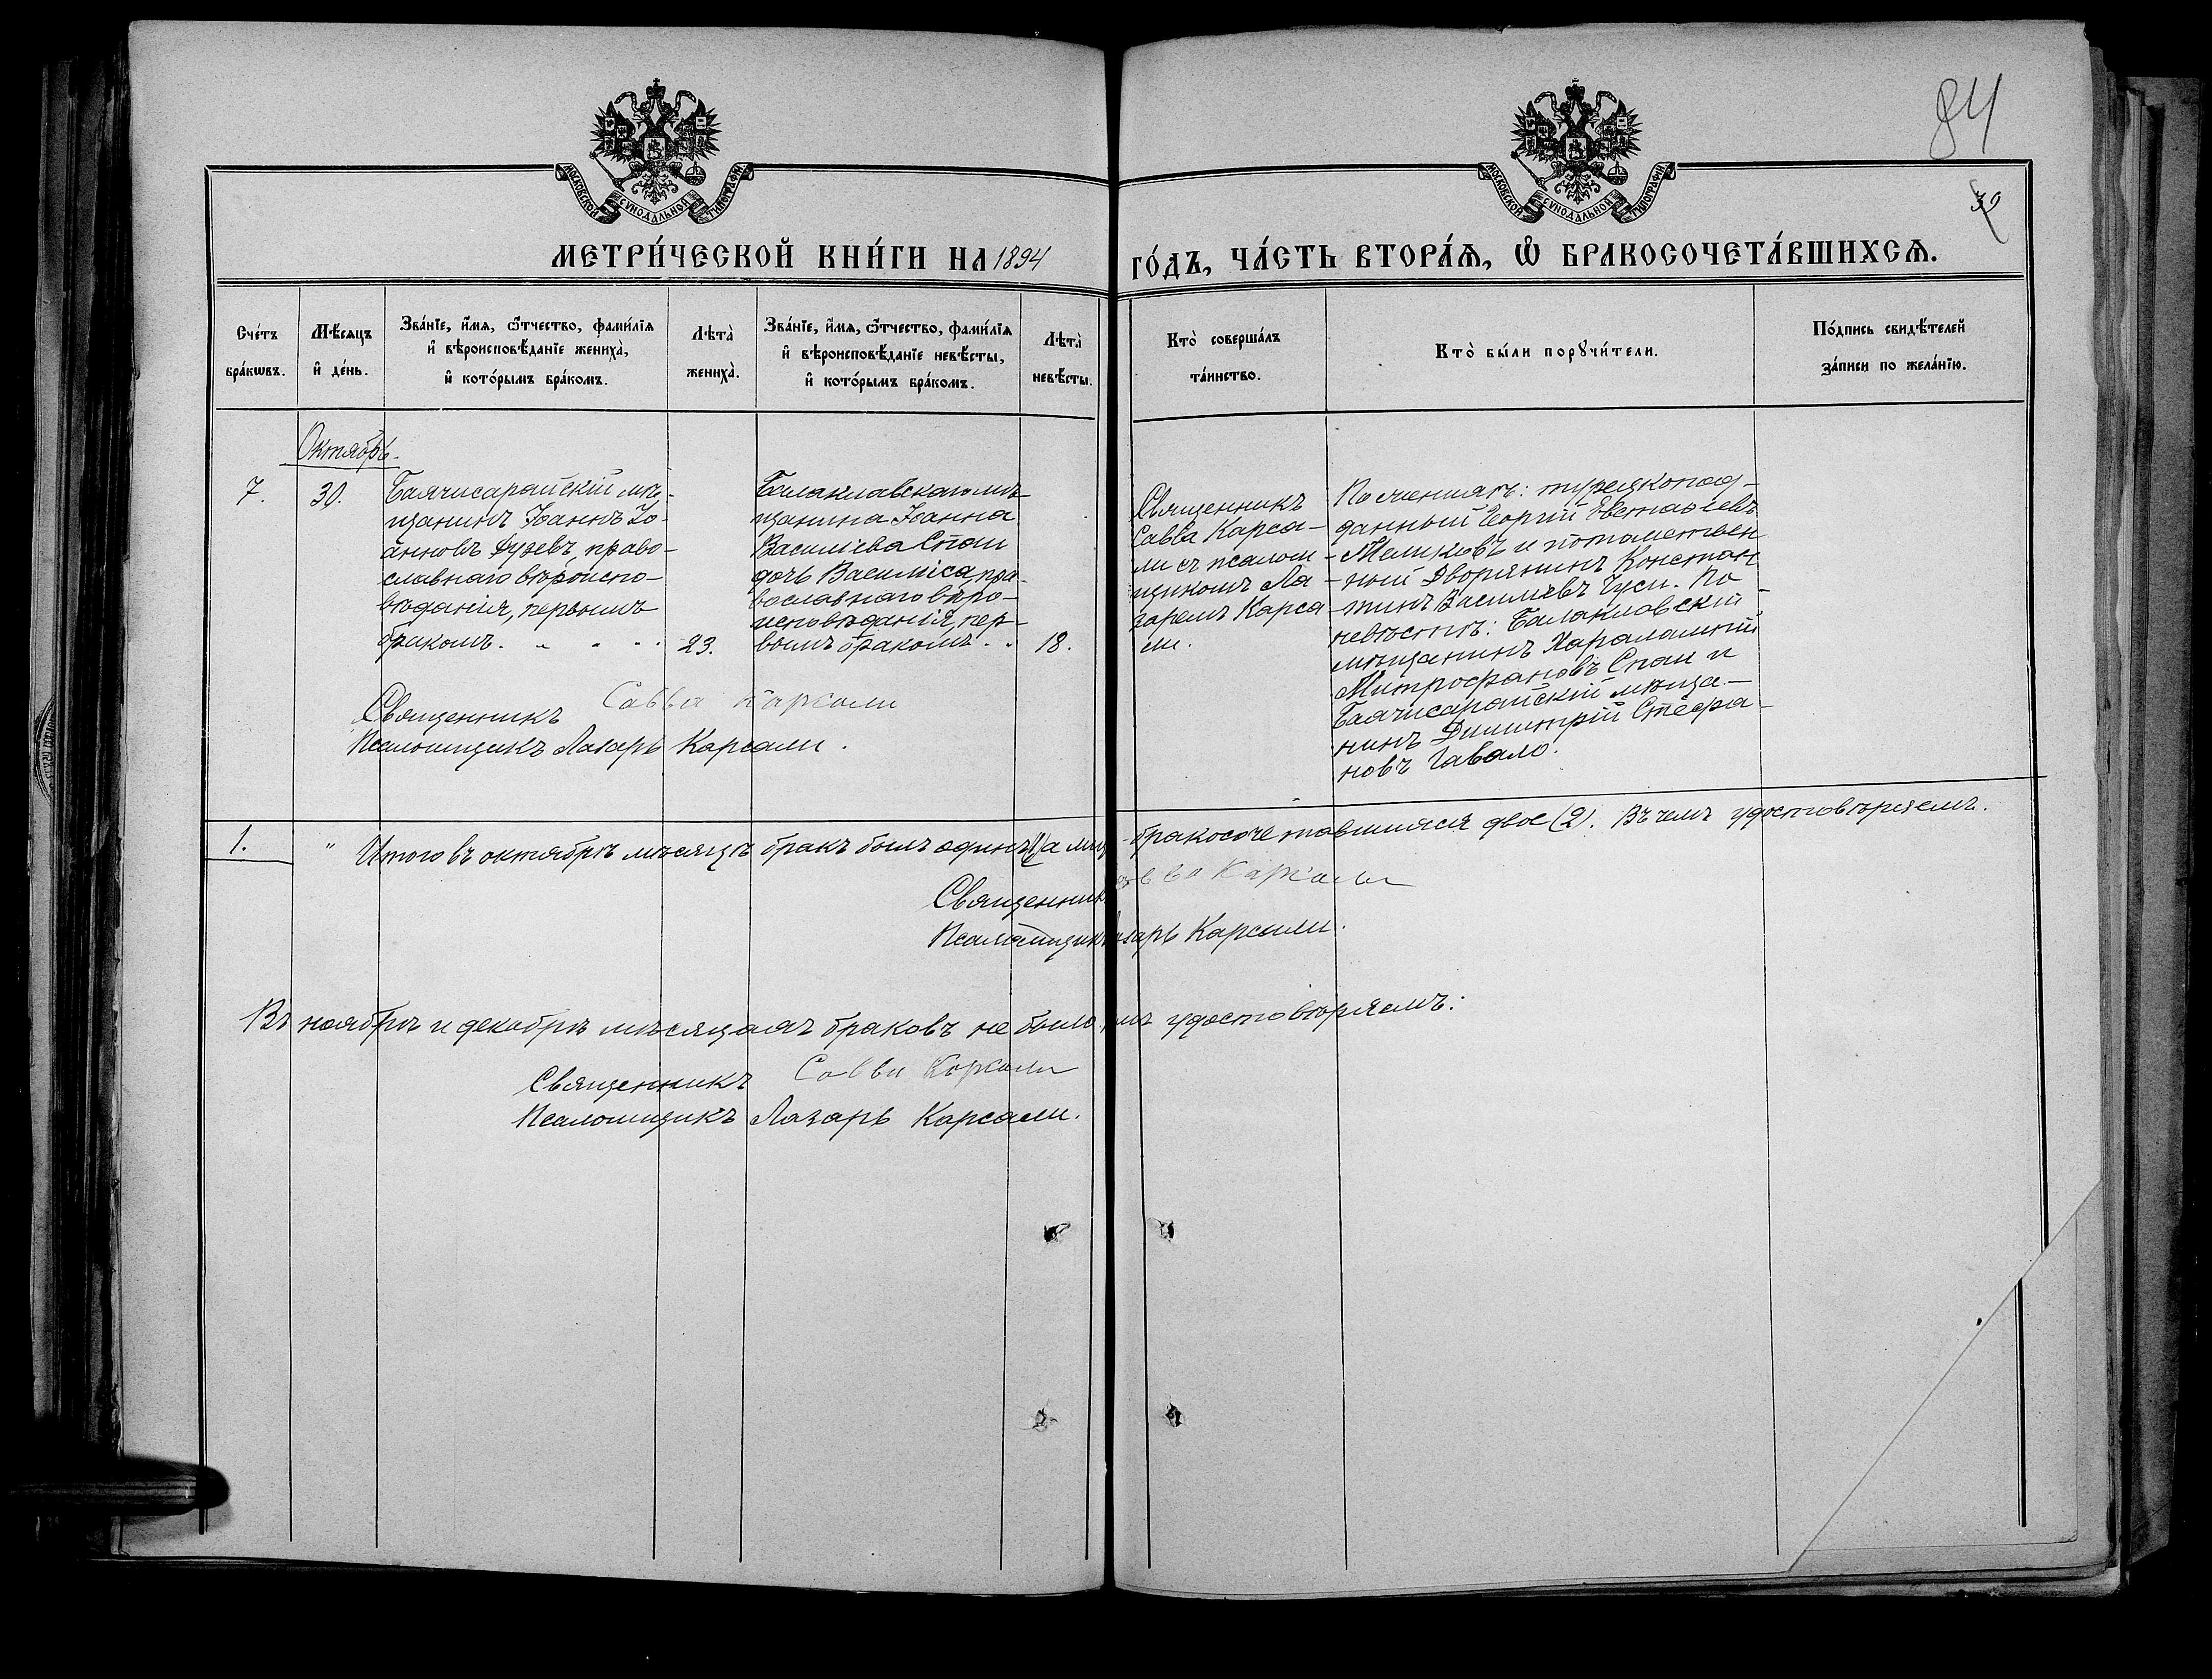 84
39
МОСКОВСКОЙ СѴНОДАЛЬНОЙ ТИПОГРАФІИ
МОСКОВСКОЙ СѴНОДАЛЬНОЙ ТИПОГРАФІИ
МЕТРИ́ЧЕСКОЙ КНИ́ГИ НА 1894 ГО́ДЪ, ЧА́СТЬ ВТОРА́Ѧ, Ѽ БРАКОСОЧЕТА́ВШИХСѦ.
Сче́тъ бра́кѡвъ.
Мѣ́сяцъ и҆ де́нь.
Зва́нїе, и҆́мѧ, ѻ҆́тчество, фами́лїѧ и҆ вѣроисповѣ́данїе жениха̀, и҆ кото́рымъ бра́комъ.
Лѣта̀ жениха̀.
Зва́нїе, и҆́мѧ, ѻ҆́тчество, фами́лїѧ и҆ вѣроисповѣ́данїе невѣ́сты, и҆ кото́рымъ бра́комъ.
Лѣта̀ невѣ́сты.
Кто̀ соверша́лъ та́инство.
Кто̀ бы́ли порꙋчи́тели.
По́дпись свидѣ́телей за́писи по жела́нїю.
Октябрь.
7.
30.
Бахчисарайскій мѣ-
щанинъ Іоаннъ Іо-
анновъ Дузевъ, право-
славнаго вѣроиспо-
вѣданія, первымъ
бракомъ.
23.
Балаклавскаго мѣ-
щанина Іоанна
Василіева Спаи
дочь Василіса, пра-
вославнаго вѣро-
исповѣданія, пер-
вымъ бракомъ.
18.
Священникъ
Савва Карса-
ли съ псалом-
щикомъ Ла-
заремъ Карса-
ли.
По женихѣ: турецкопод-
данный Георгій Евстаѳіевъ
Меликовъ и потомствен-
ный Дворянинъ Констан-
тинъ Василіевъ Чуси. По
невѣстѣ: Балаклавскій
мѣщанинъ Харалампій
Митрофановъ Спаи и
Бахчисарайскій мѣща-
нинъ Димитрій Стефа-
новъ Гавало.
Священникъ Савва Карсали
Псаломщикъ Лазарь Карсали.
1. " Итого въ октябрѣ мѣсяцѣ бракъ былъ одинъ (1) а лицъ бракосочетавшихся двое (2). Въ чемъ удостовѣряемъ.
Священникъ Савва Карсали
Псаломщикъ Лазарь Карсали.
Въ ноябрѣ и декабрѣ мѣсяцахъ браковъ не было удостовѣряемъ:
Священникъ Савва Карсали
Псаломщикъ Лазарь Карсали.